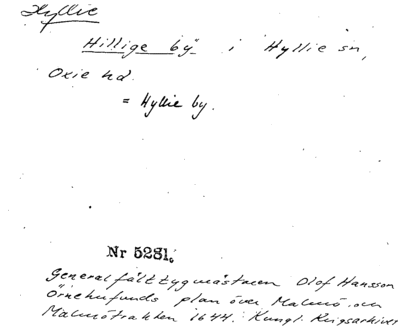 Hyllie
Hillige by i Hyllie sn,
Oxie hd.
= Hyllie by.
Nr 5281.
Generalfälttygmästaren Olof Hansson
Örnehufvuds plan över Malmö och
Malmötrakten 1644. Kungl. Krigsarkivet